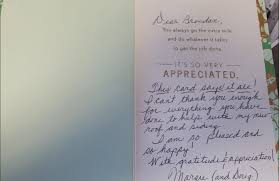 Dear Brendan,
You always go the extra mile
and do whatever it takes
to get the job done.
IT'S SO VERY
APPRECIATED.
This card says it all!
I can't thank you enough
for everything you have
done to help with my new
roof and siding.
I am so pleased and
so happy!
With gratitude & appreciation,
Margie (and Doug)